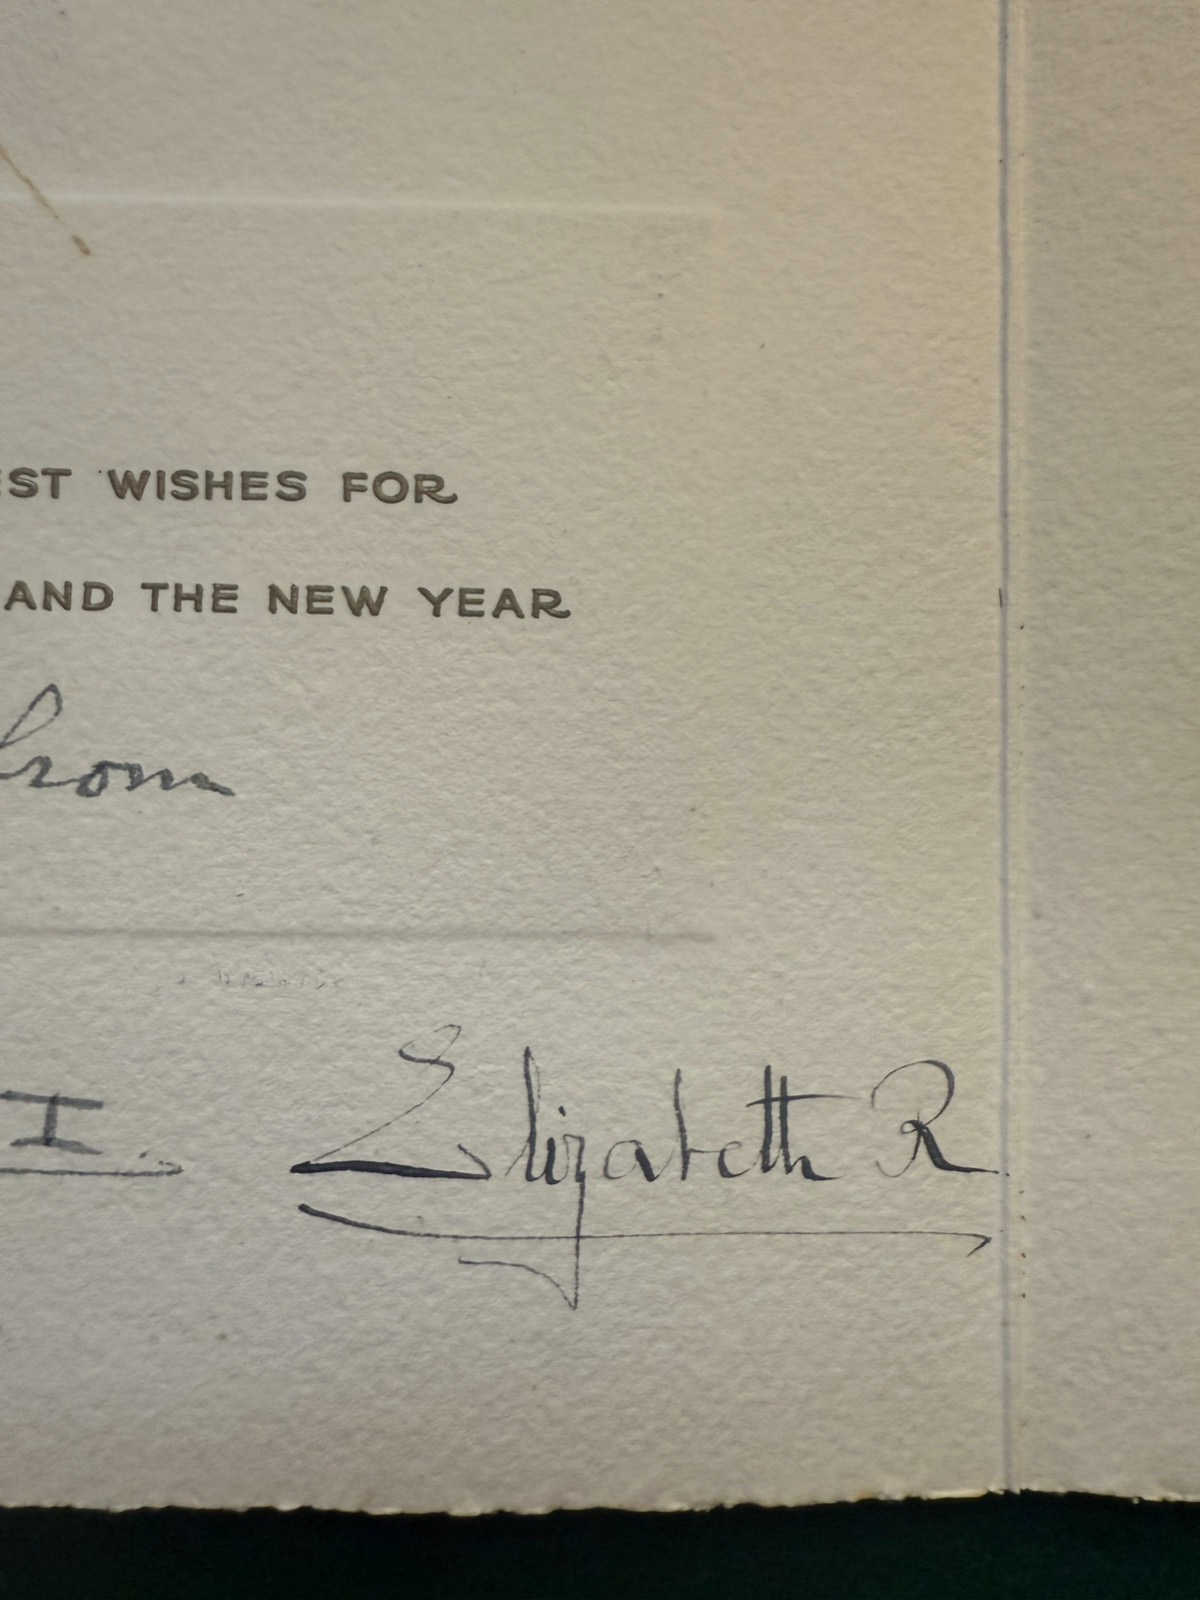 EST WISHES FOR
AND THE NEW YEAR
from
I. Elizabeth R